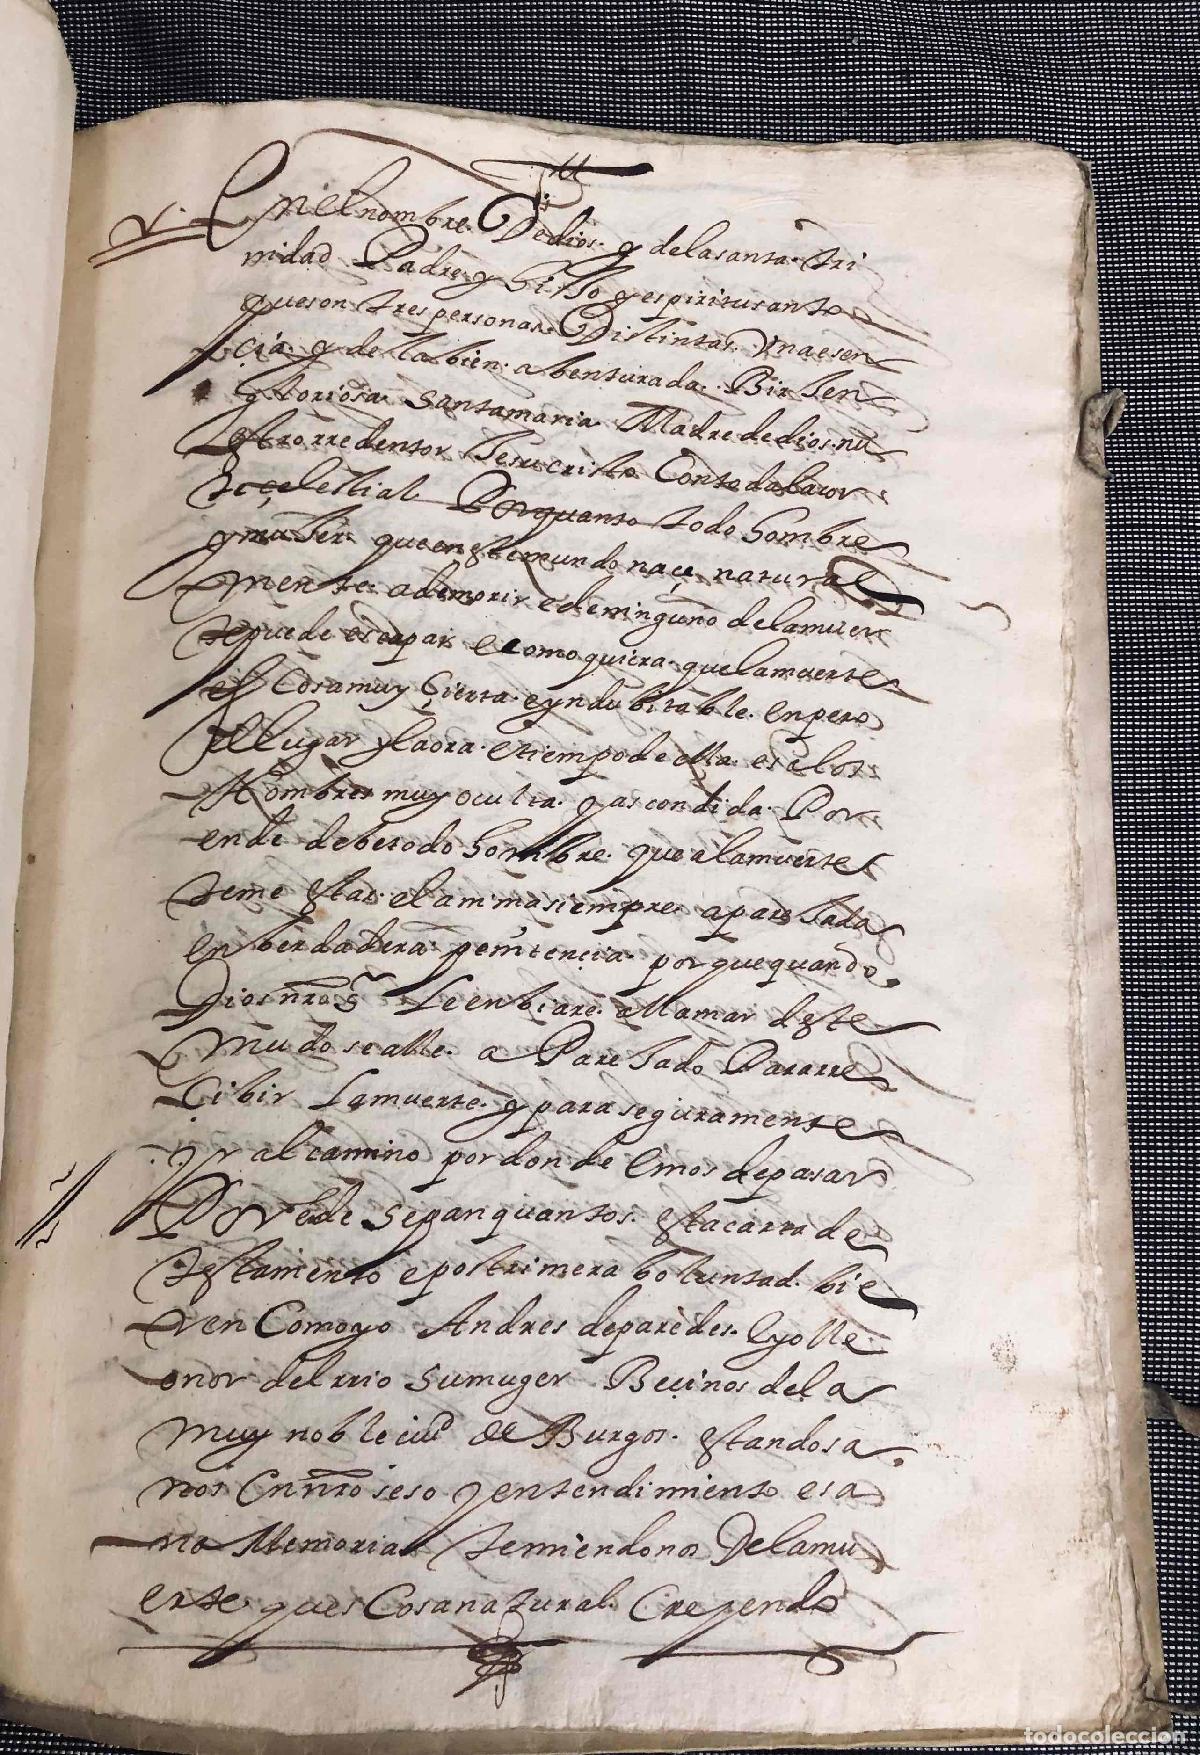 En el nombre De dios y de la santa tri
nidad Padre y hijo y espiritu santo
que son tres personas Distintas Vna esen
çia y de la bien abenturada Birjen
gloriosa Santa maria Madre de dios nu
estro rredentor Jesucristo Con toda la cor
te çelestial Por quanto todo hombre
y mujer que en este mundo naçe natural
mente a de morir e de ninguno de la muer
te puede escapar e como quiera que la muerte
es Cosa muy çierta e yndubitable enpero
el lugar y la ora e tiempo de ella es a los
Hombres muy oculta y ascondida Por
ende debe todo hombre que a la muerte
teme estar el anima siempre aparejada
en berdadera penitençia por que quando
Dios nro Sr Le enbiare a llamar deste
mudo se alle aParejado Para rre
Cibir La muerte y para seguramente
yr al camino por donde emos de pasar
Por ede Sepan quantos esta carta de
testamento e postrimera boluntad bie
ren Como yo Andres de paredes E yo lle
onor del rrio Su muger Beçinos de la
muy noble ciud de Burgos estando sa
nos En nro seso y entendimiento e sa
na Memoria temiendonos De la mu
erte ques Cosa natural Creyendo
todocoleccion